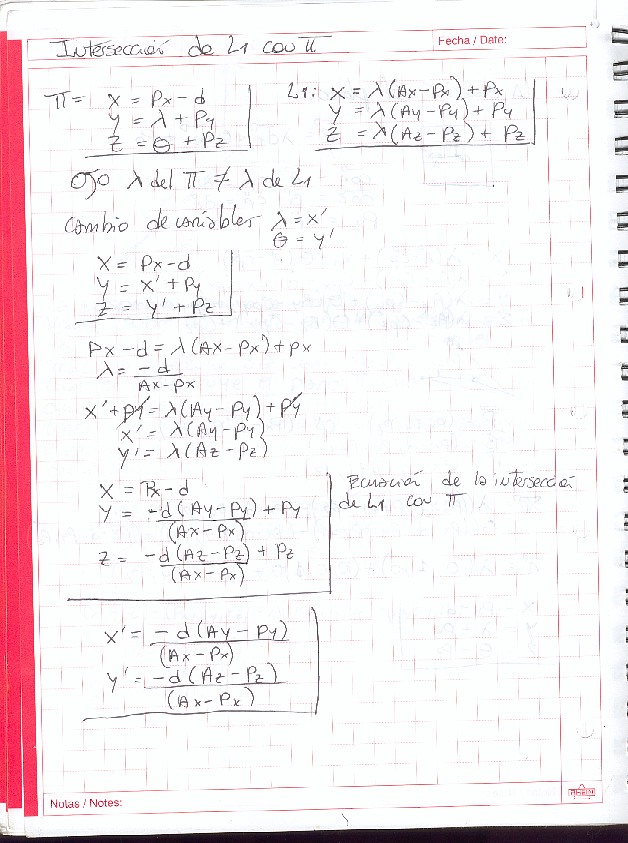 Intersección de L1 con π
Fecha / Date:
π= X = Px - d
Y = λ + Py
Z = θ + Pz
L1: X = λ(Ax-Px) + Px
Y = λ(Ay-Py) + Py
Z = λ(Az-Pz) + Pz
Ojo λ del π ≠ λ de L1
Cambio de variables λ = x'
θ = y'
X = Px-d
Y = x' + Py
Z = y' + Pz
Px-d = λ(Ax-Px)+px
λ = -d / Ax-px
x' + py = λ(Ay-Py) + py
x' = λ(Ay-Py)
y' = λ(Az-Pz)
X = Px-d
Y = -d(Ay-Py) / (Ax-Px) + Py
Z = -d(Az-Pz) / (Ax-Px) + Pz
Ecuación de la intersección
de L1 con π
x' = -d(Ay-Py) / (Ax-Px)
y' = -d(Az-Pz) / (Ax-Px)
Notas / Notes: